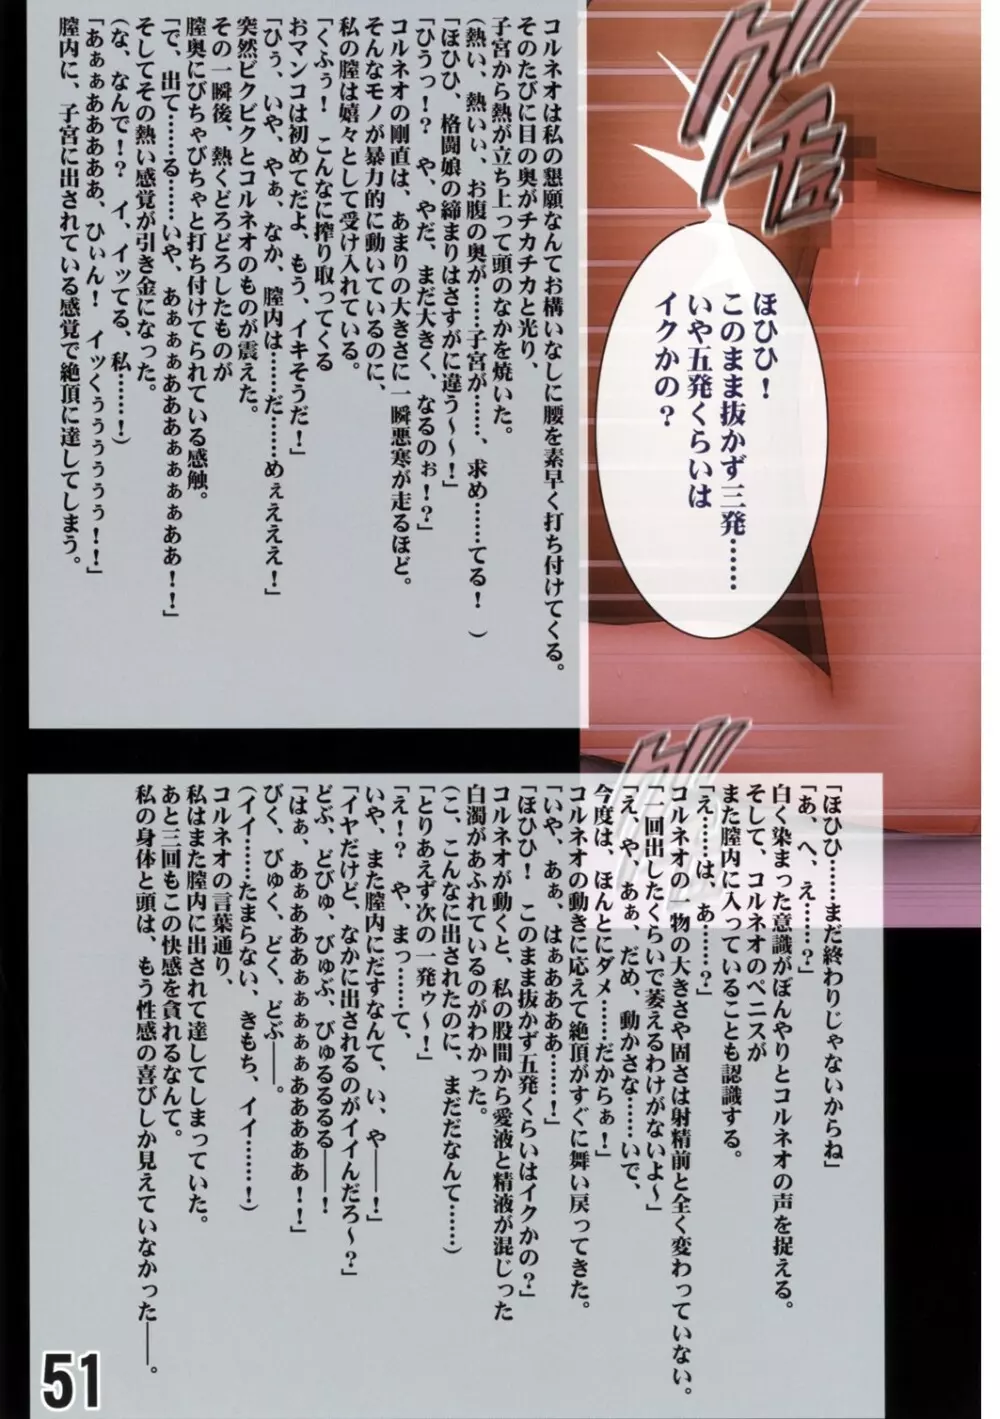 グチュ
ほひひ！
このまま抜かず三発……
いや五発くらいは
イクかの？
コルネオは私の懇願なんてお構いなしに腰を素早く打ち付けてくる。
そのたびに目の奥がチカチカと光り、
子宮から熱が立ち上って頭のなかを焼いた。
（熱い、熱いぃ、お腹の奥が……子宮が……、求め……てる！　）
「ほひひ、格闘娘の締まりはさすがに違う～～！」
「ひうっ！？　や、やだ、まだ大きく、なるのぉ！？」
コルネオの剛直は、あまりの大きさに一瞬悪寒が走るほど。
そんなモノが暴力的に動いているのに、
私の膣は嬉々として受け入れている。
「くふぅ！　こんなに搾り取ってくる
おマンコは初めてだよ、もう、イキそうだ！」
「ひぅ、いや、やぁ、なか、膣内は……だ……めぇえええ！」
突然ビクビクとコルネオのものが震えた。
その一瞬後、熱くどろどろしたものが
膣奥にびちゃびちゃと打ち付けてられている感触。
「で、出て……る……いや、あぁぁぁあああぁぁぁぁああ！！」
そしてその熱い感覚が引き金になった。
（な、なんで！？　イ、イッてる、私……！）
「あぁぁああああ、ひぃん！　イッくぅぅぅぅぅ！！」
膣内に、子宮に出されている感覚で絶頂に達してしまう。
「ほひひ……まだ終わりじゃないからね」
「あ、へ、え……？」
白く染まった意識がぼんやりとコルネオの声を捉える。
そして、コルネオのペニスが
また膣内に入っていることも認識する。
「え……は、あ……？」
コルネオの一物の大きさや固さは射精前と全く変わっていない。
「一回出したくらいで萎えるわけがないよ～」
「え、や、あぁ、だめ、動かさな……いで、
今度は、ほんとにダメ……だからぁ！」
コルネオの動きに応えて絶頂がすぐに舞い戻ってきた。
「いや、あぁ、はぁああああ……！」
「ほひひ！　このまま抜かず五発くらいはイクかの？」
コルネオが動くと、私の股間から愛液と精液が混じった
白濁があふれているのがわかった。
（こ、こんなに出されたのに、まだだなんて……）
「とりあえず次の一発ゥ～！」
「え！？　や、まっ……て、
いや、また膣内にだすなんて、い、や――！」
「イヤだけど、なかに出されるのがイイんだろ～？」
どぷ、どびゅ、びゅぶ、びゅるるる――！
「はぁ、あぁあああぁぁぁぁぁああああ！！」
びく、びゅく、どく、どぷ――。
（イイ……たまらない、きもち、イイ……！）
コルネオの言葉通り、
私はまた膣内に出されて達してしまっていた。
あと三回もこの快感を貪れるなんて。
私の身体と頭は、もう性感の喜びしか見えていなかった――。
51